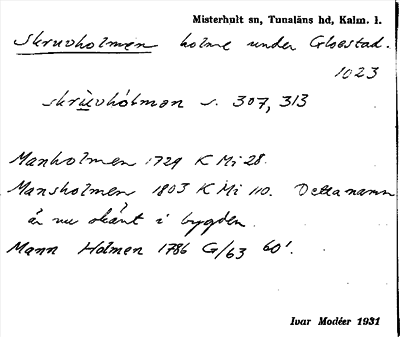 Misterhult sn, Tunaläns hd, Kalm. l.
Skruvholmen holme under Gloestad.
1023
skrùvhól̀man s. 307, 313
Manholmen 1729 K Mi 28.
Mansholmen 1803 K Mi 110. Detta namn
är nu okänt i bygden.
Mann Holmen 1786 G/63 60'.
Ivar Modéer 1931